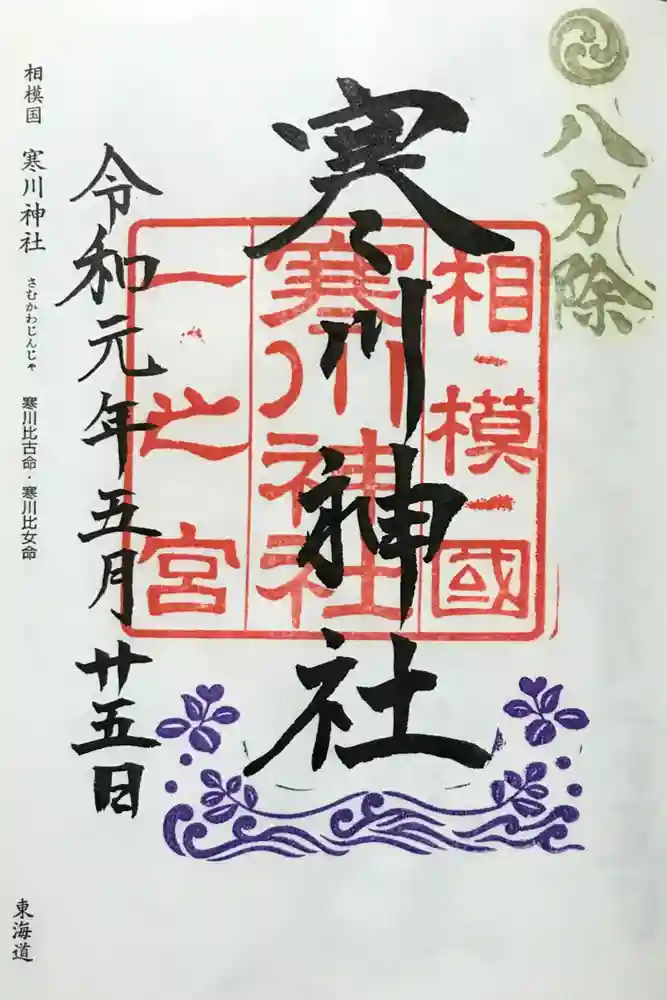 八方除
寒川神社
相模國
寒川神社
一之宮
令和元年五月廿五日
相模国 寒川神社 さむかわじんじゃ 寒川比古命・寒川比女命
東海道